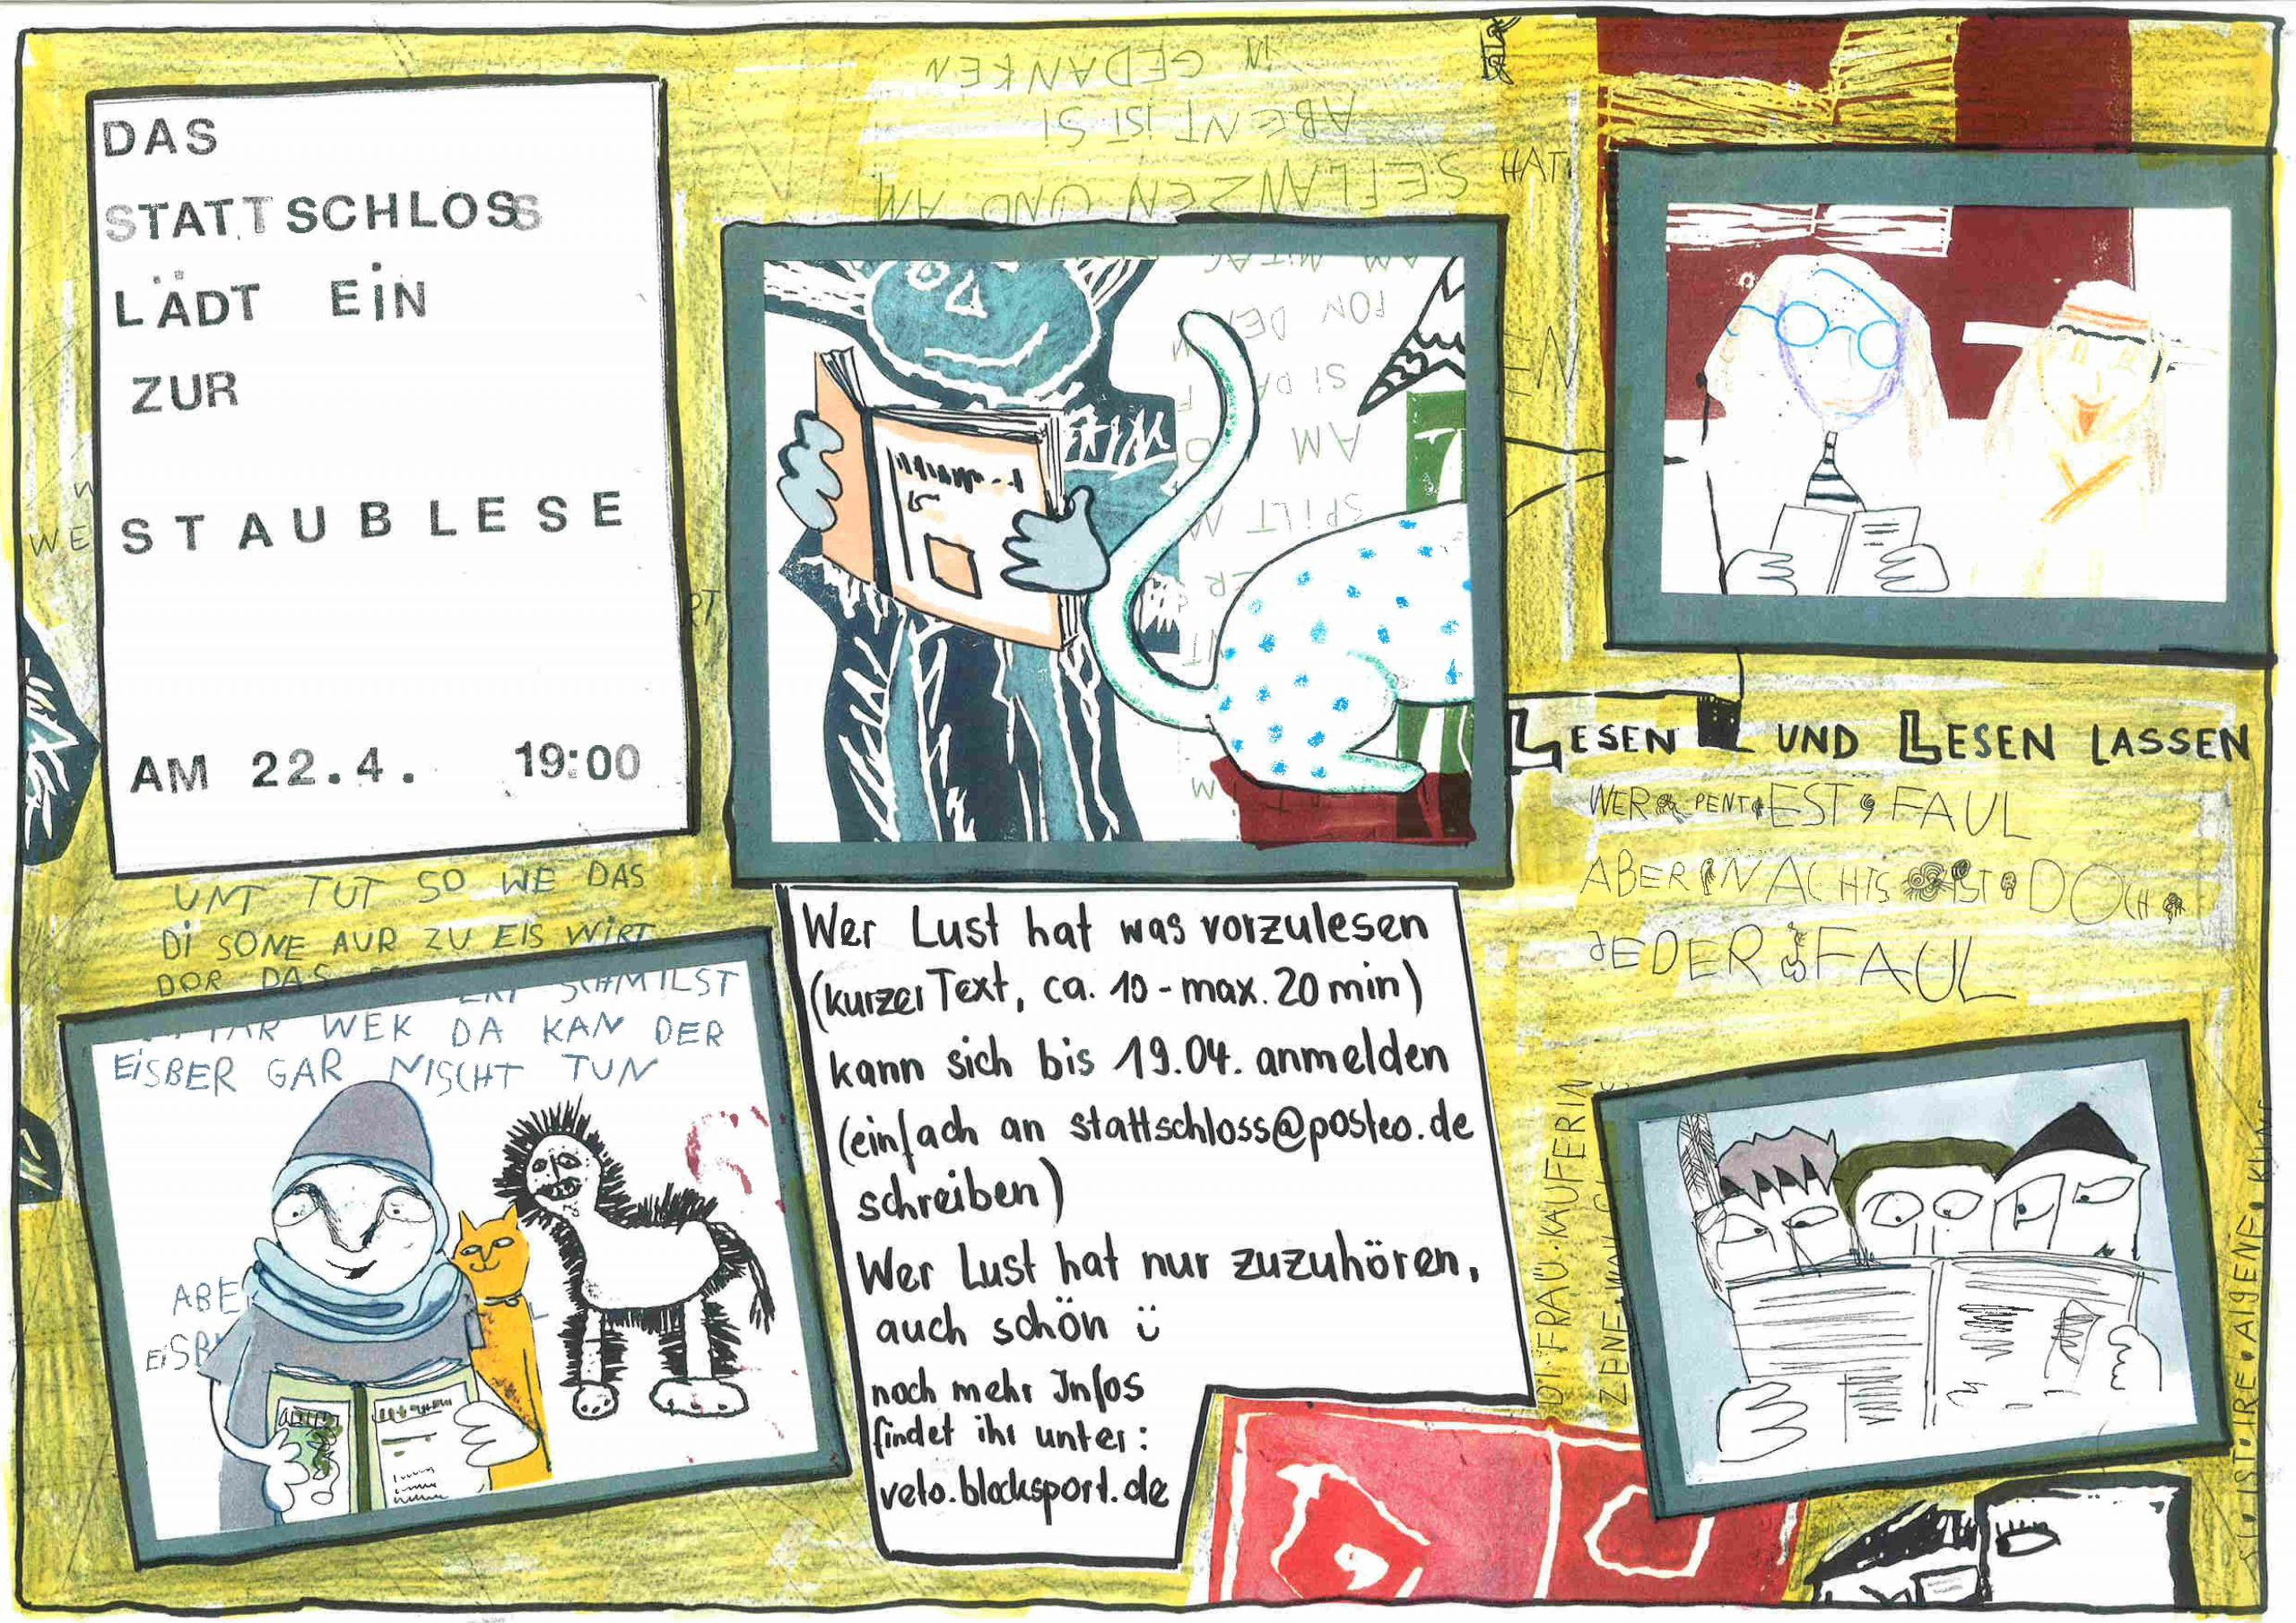 DAS
STATTSCHLOSS
LÄDT EIN
ZUR
STAUBLESE
AM 22.4. 19:00
IN
GEDANKEN
ABENT ISI SI
SEFLANZEN UND AM
HAT
AM MITAG
FON DER
SI DA
AM
SPILT
WE
RT
LESEN UND LESEN LASSEN
WER PENT EST FAUL
ABER NACHTS IST DOCH
JEDER FAUL
UNT TUT SO WE DAS
DI SONE AUR ZU EIS WIRT
DOR DAS
SCHMILST
WEK DA KAN DER
EISBER GAR NISCHT TUN
ABE
EISB
Wer Lust hat was vorzulesen
(kurzer Text, ca. 10 - max. 20 min)
kann sich bis 19.04. anmelden
(einfach an stattschloss@posteo.de
schreiben)
Wer Lust hat nur zuzuhören,
auch schön ü
noch mehr Infos
findet ihr unter:
veto.blocksport.de
DI FRAU KAUFERIN